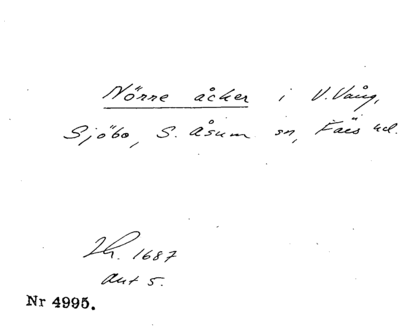 Nörre åcker i V. Vång,
Sjöbo, S. Åsum sn, Färs hd.
Lh. 1687
akt 5.
Nr 4995.